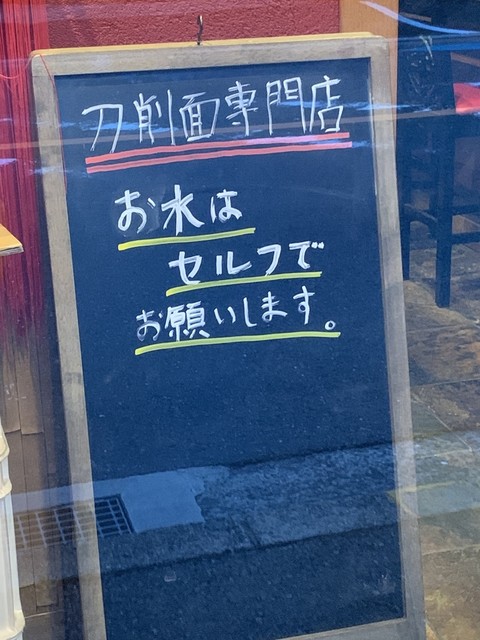 刀削面専門店
お水は
セルフで
お願いします。